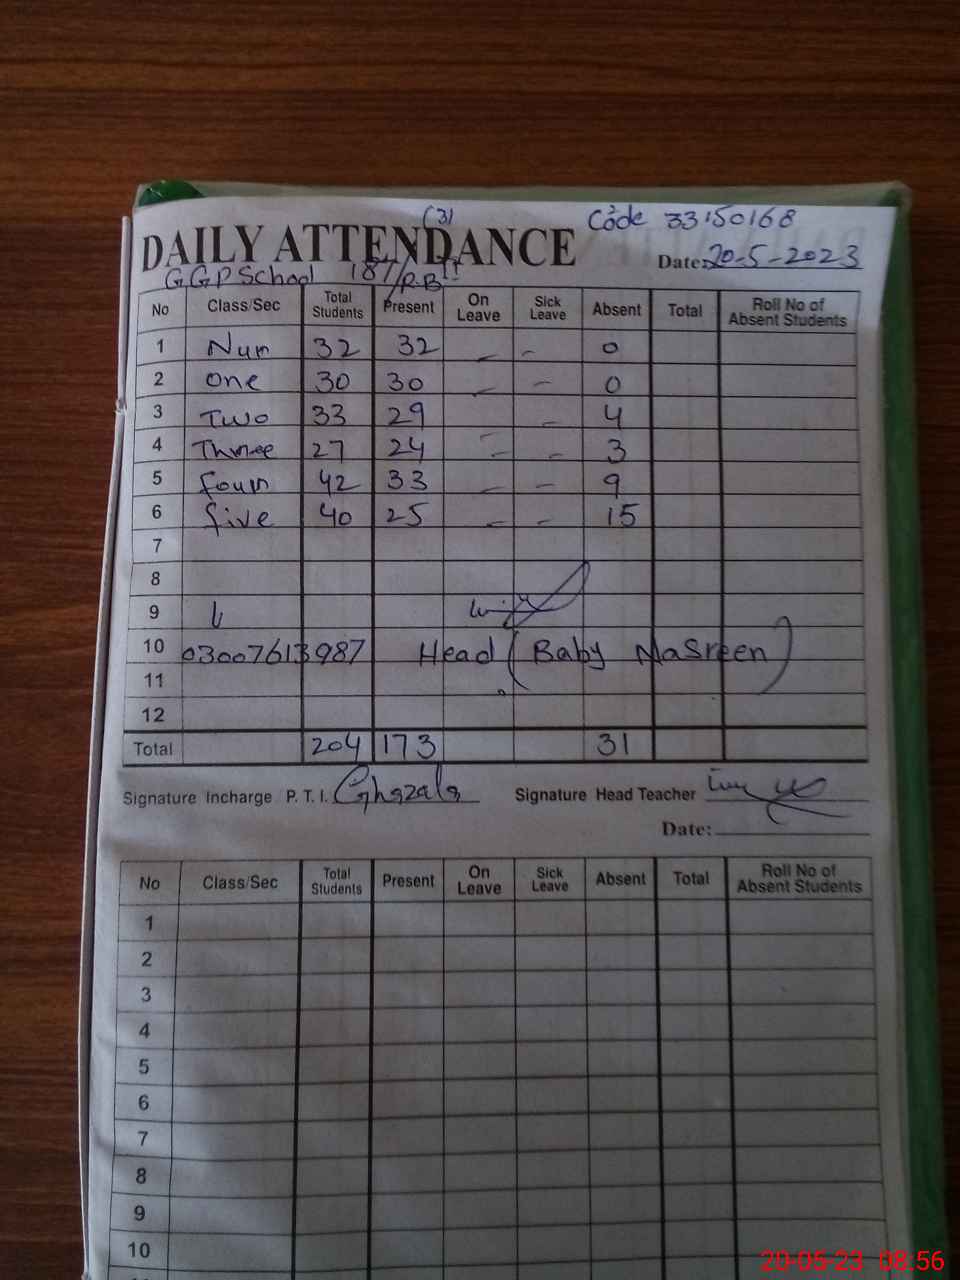 (3)
Code 33150168
DAILY ATTENDANCE
Date: 20-5-2023
GGP School 187/R.B II
No Class/Sec Total Students Present On Leave Sick Leave Absent Total Roll No of Absent Students
1 Nur 32 32 - - 0
2 One 30 30 - - 0
3 Two 33 29 - 4
4 Three 27 24 - - 3
5 four 42 33 - - 9
6 five 40 25 - - 15
7
8
9
10 03007613987 Head (Baby Nasreen)
11
12
Total 204 173 31
Signature Incharge P. T. I. Ghazala Signature Head Teacher
Date:
No Class/Sec Total Students Present On Leave Sick Leave Absent Total Roll No of Absent Students
1
2
3
4
5
6
7
8
9
10
20-05-23 08.56